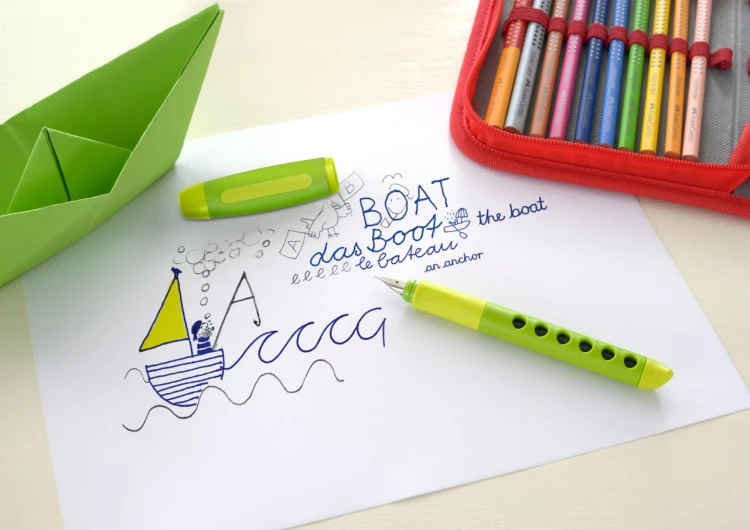 B
BOAT
A
das Boot the boat
eeeee le bateau
an anchor
A